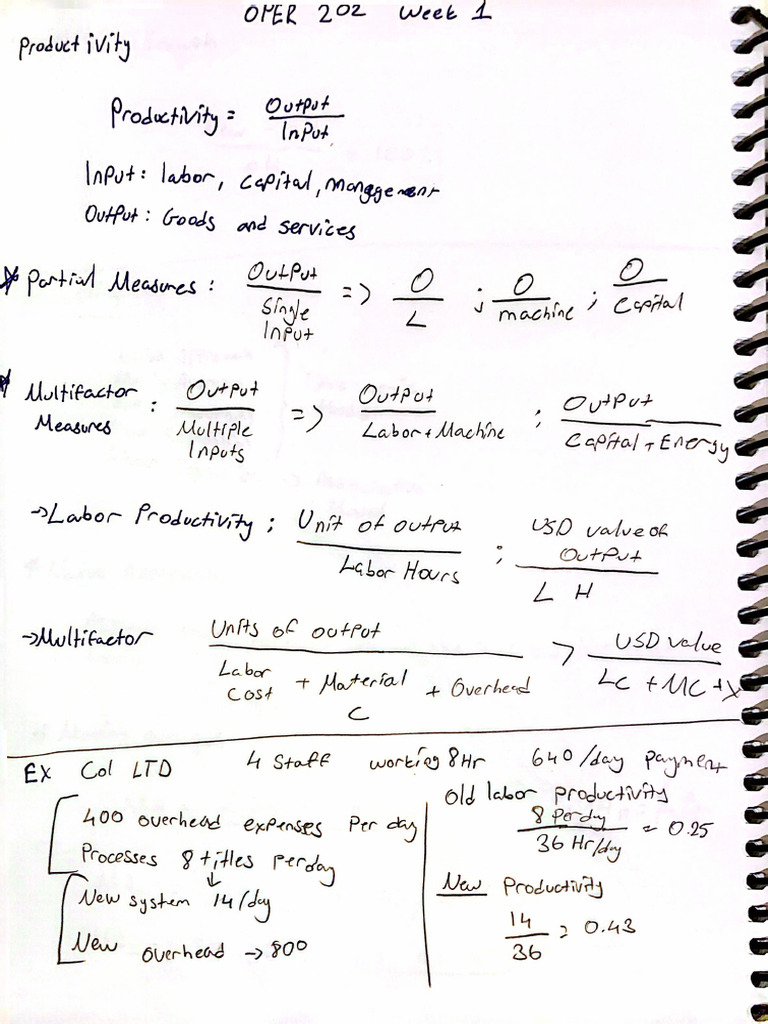 OPER 202 Week 1
Productivity
Productivity = Output / Input
Input: labor, capital, management
Output: Goods and services
* Partial Measures: Output / Single Input => O / L ; O / machine ; O / Capital
* Multifactor Measures: Output / Multiple Inputs => Output / Labor + Machine ; Output / Capital + Energy
→ Labor Productivity ; Unit of output / Labor Hours ; USD value of Output / L H
→ Multifactor Units of output / Labor Cost + Material C + Overhead > USD value / LC + MC + X
Ex Col LTD 4 Staff working 8Hr 640/day payment
400 overhead expenses per day
Processes 8 titles per day
↓
New system 14/day
New overhead → 800
Old labor productivity
8 Per day / 36 Hr/day = 0.25
New Productivity
14 / 36 = 0.43